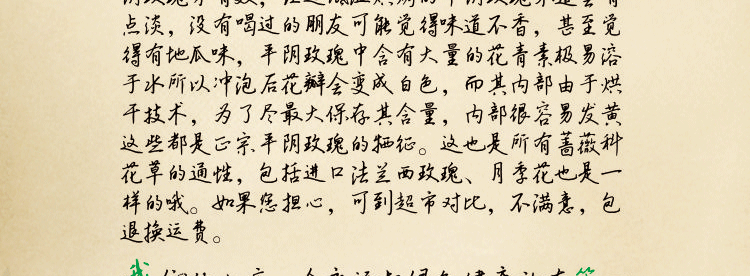 点淡，没有喝过的朋友可能觉得味道不香，甚至觉
得有地瓜味，平阴玫瑰中含有大量的花青素极易溶
于水所以冲泡后花瓣会变成白色，而其内部由于烘
干技术，为了尽最大保存其含量，内部很容易发黄
这些都是正宗平阴玫瑰的牺征。这也是所有蔷薇科
花草的通性，包括进口法兰西玫瑰、月季花也是一
样的哦。如果您担心，可到超市对比，不满意，包
退换运费。